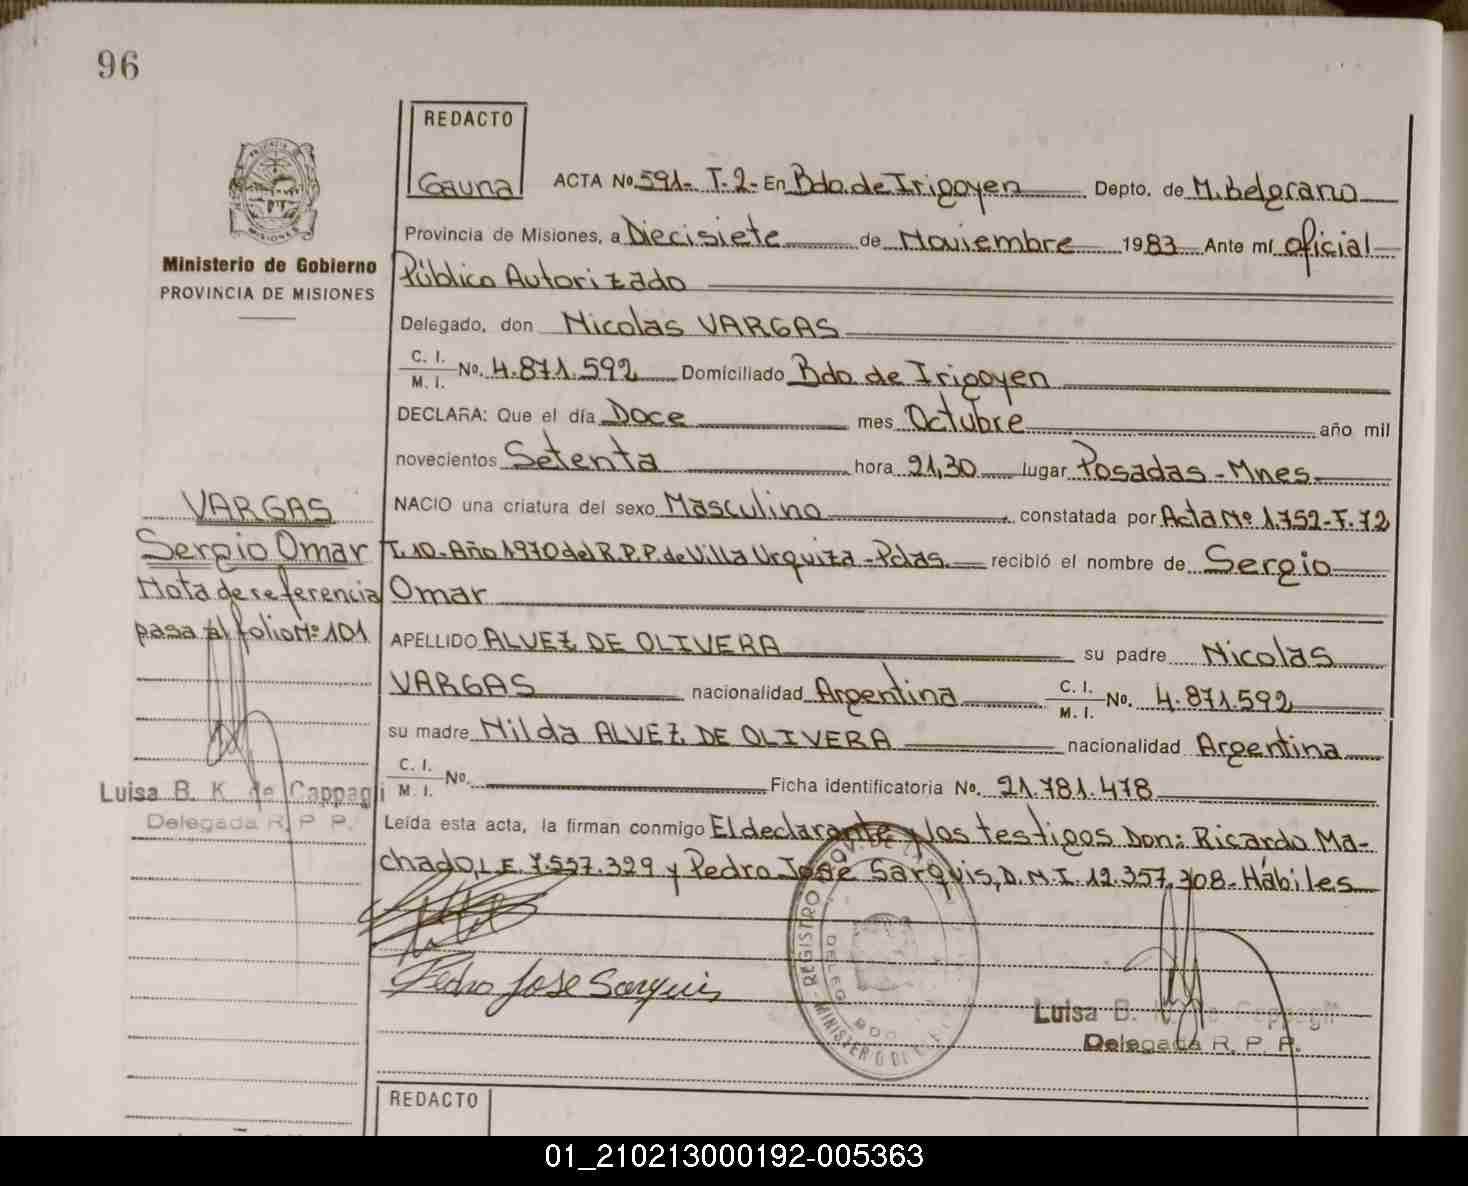 96
REDACTO
Gauna
ACTA No. 591- T. 2- En Bdo. de Irigoyen Depto. de M. Belgrano
Provincia de Misiones, a Diecisiete de Noviembre 1983 Ante mí oficial
Público Autorizado
Ministerio de Gobierno
PROVINCIA DE MISIONES
Delegado, don Nicolas VARGAS
C. I.
M. I. No. 4.871.592 Domiciliado Bdo de Irigoyen
DECLARA: Que el día Doce mes Octubre año mil
novecientos Setenta hora 21,30 lugar Posadas - Mnes.
NACIO una criatura del sexo Masculino constatada por Acta Nº 1.752-F. 72
T. 10- Año 1970 del R.P.P. de Villa Urquiza - Pdas. recibió el nombre de Sergio
Omar
APELLIDO ALVEZ DE OLIVERA su padre Nicolas
VARGAS nacionalidad Argentina C. I. M. I. No. 4.871.592
su madre Nilda ALVEZ DE OLIVERA nacionalidad Argentina
C. I.
M. I. No. Ficha identificatoria No. 21.781.478
Leída esta acta, la firman conmigo El declarante y los testigos Don: Ricardo Ma-
chado, L.E. 7.557.329 y Pedro José Sarquis, D.N.I. 12.357.308- Hábiles
Pedro Jose Sarquis
Luisa B. K. de Cappagli
Delegada R. P. P.
VARGAS
Sergio Omar
Nota de referencia
pasa al folio Nº 101
Luisa B. K. de Cappagli
Delegada R. P. P.
REDACTO
01_210213000192-005363